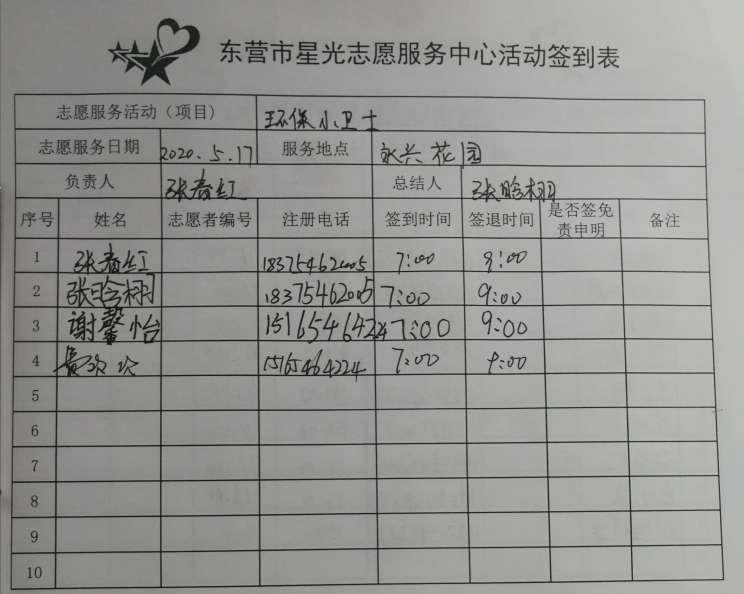 东营市星光志愿服务中心活动签到表
志愿服务活动（项目） 环保小卫士
志愿服务日期 2020.5.17 服务地点 永兴花园
负责人 张春红 总结人 张晗栩
序号 姓名 志愿者编号 注册电话 签到时间 签退时间 是否签免责申明 备注
1 张春红 18375462005 7:00 9:00
2 张晗栩 18375462005 7:00 9:00
3 谢馨怡 15165464224 7:00 9:00
4 15165464224 7:00 9:00
5
6
7
8
9
10